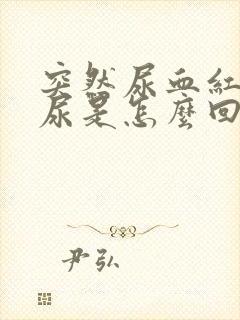 突然尿血紅
尿是怎麼回
尹弘